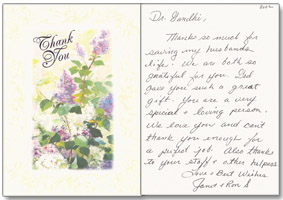 Thank
You
Dr. Gandhi,
Thanks so much for
saving my husbands
life. We are both so
grateful for you. God
gave you such a great
gift. You are a very
special & loving person.
We love you and can't
thank you enough for
a perfect job. Also thanks
to your staff & other helpers
Love & Best Wishes
Janet & Ron S